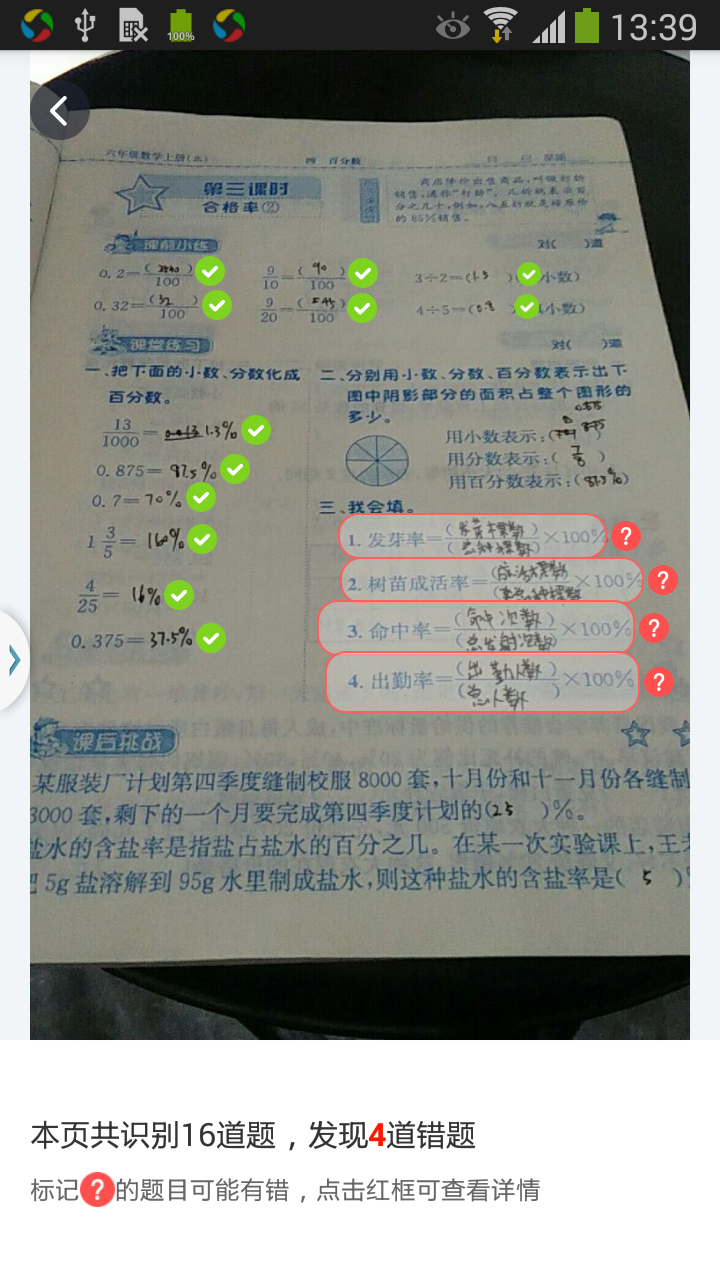 100%
13:39
六年级数学上册(北)
四 百分数
月 日 星期
第三课时
合格率②
商店降价出售商品,叫做打折
销售,通称"打折"。几折就表示百
分之几十,例如,八五折就是按原价
的85%销售。
课前小练
对( )道
0.2=( )/100
9/10=(90)/100
3÷2=(1.5)(小数)
0.32=(32)/100
9/20=( )/100
4÷5=(0.8)(小数)
课堂练习
对( )道
一、把下面的小数、分数化成
百分数。
13/1000= 1.3%
0.875=87.5%
0.7=70%
1 3/5=160%
4/25=16%
0.375=37.5%
二、分别用小数、分数、百分数表示出下
图中阴影部分的面积占整个图形的
多少。
用小数表示:( )
用分数表示:(7/8)
用百分数表示:(87.5%)
三、我会填。
1. 发芽率=(发芽棵数)/(总种棵数)×100%
2. 树苗成活率=(成活棵数)/( 种棵数×100%
3. 命中率=(命中次数)/(总发射次数)×100%
4. 出勤率=(出勤人数)/(总人数)×100%
课后挑战
某服装厂计划第四季度缝制校服8000套,十月份和十一月份各缝制
3000套,剩下的一个月要完成第四季度计划的(25)%。
盐水的含盐率是指盐占盐水的百分之几。在某一次实验课上,王老
把5g盐溶解到95g水里制成盐水,则这种盐水的含盐率是(5)%
本页共识别16道题,发现4道错题
标记?的题目可能有错,点击红框可查看详情